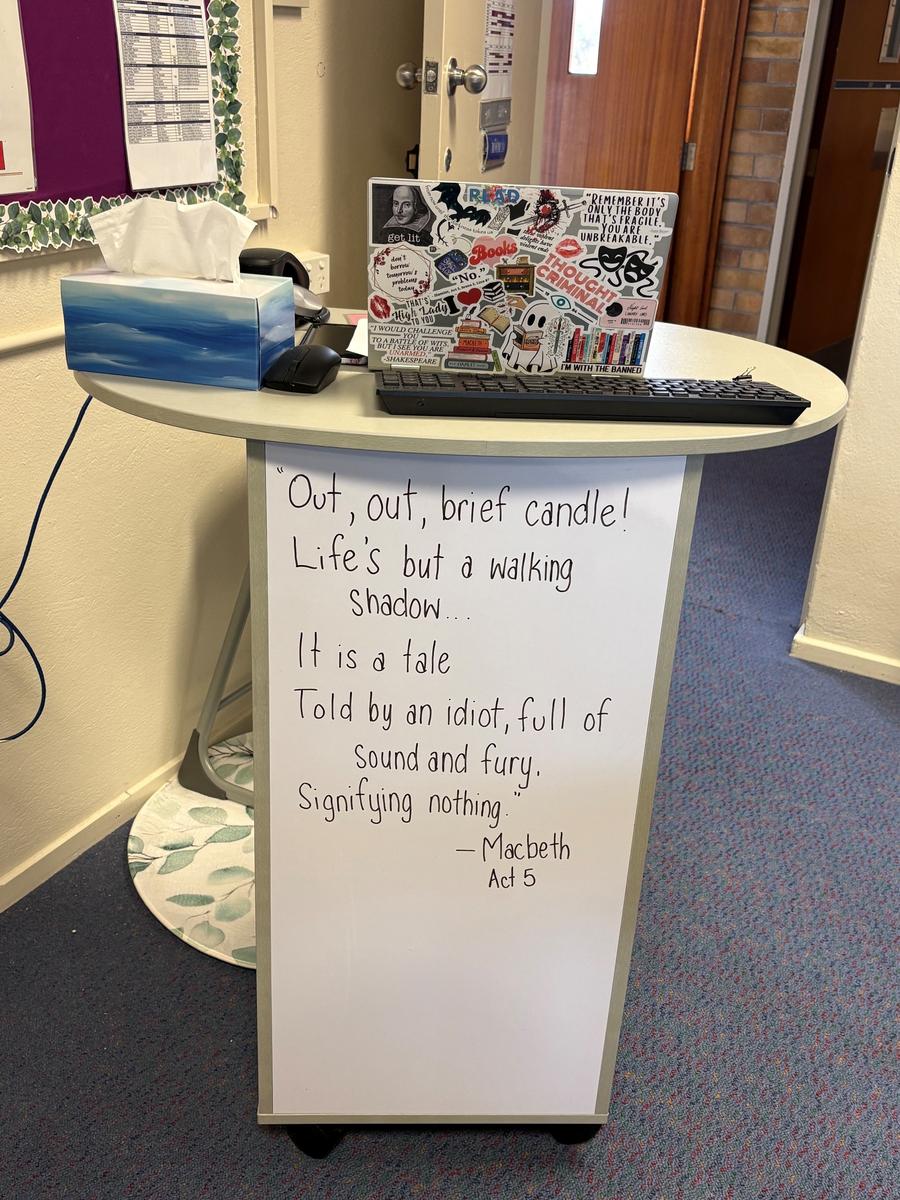 READ
"REMEMBER IT'S
ONLY THE BODY
THAT'S FRAGILE.
YOU ARE
UNBREAKABLE."
get lit
Books
don't
borrow
tomorrow's
problems
today
"No."
THOUGHT
CRIMINAL
THAT'S
High Lady
TO YOU
I
"I WOULD CHALLENGE
YOU
TO A BATTLE OF WITS,
BUT I SEE YOU ARE
UNARMED."
-SHAKESPEARE
MACBETH
I'M WITH THE BANNED
"Out, out, brief candle!
Life's but a walking
shadow...
It is a tale
Told by an idiot, full of
sound and fury,
Signifying nothing."
— Macbeth
Act 5